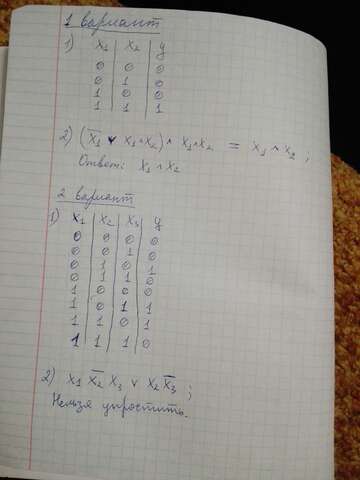 1 вариант
1) x₁ x₂ y
0 0 0
0 1 0
1 0 0
1 1 1
2) (x̅₁ ∨ x₁∘x₂) ∧ x₁∧x₂ = x₁ ∧ x₂ ;
Ответ: x₁ ∧ x₂
2 вариант
1) x₁ x₂ x₃ y
0 0 0 0
0 0 1 0
0 1 0 1
0 1 1 0
1 0 0 0
1 0 1 1
1 1 0 1
1 1 1 0
2) x₁ x̅₂ x₃ ∨ x₂ x̅₃ ;
Нельзя упростить.